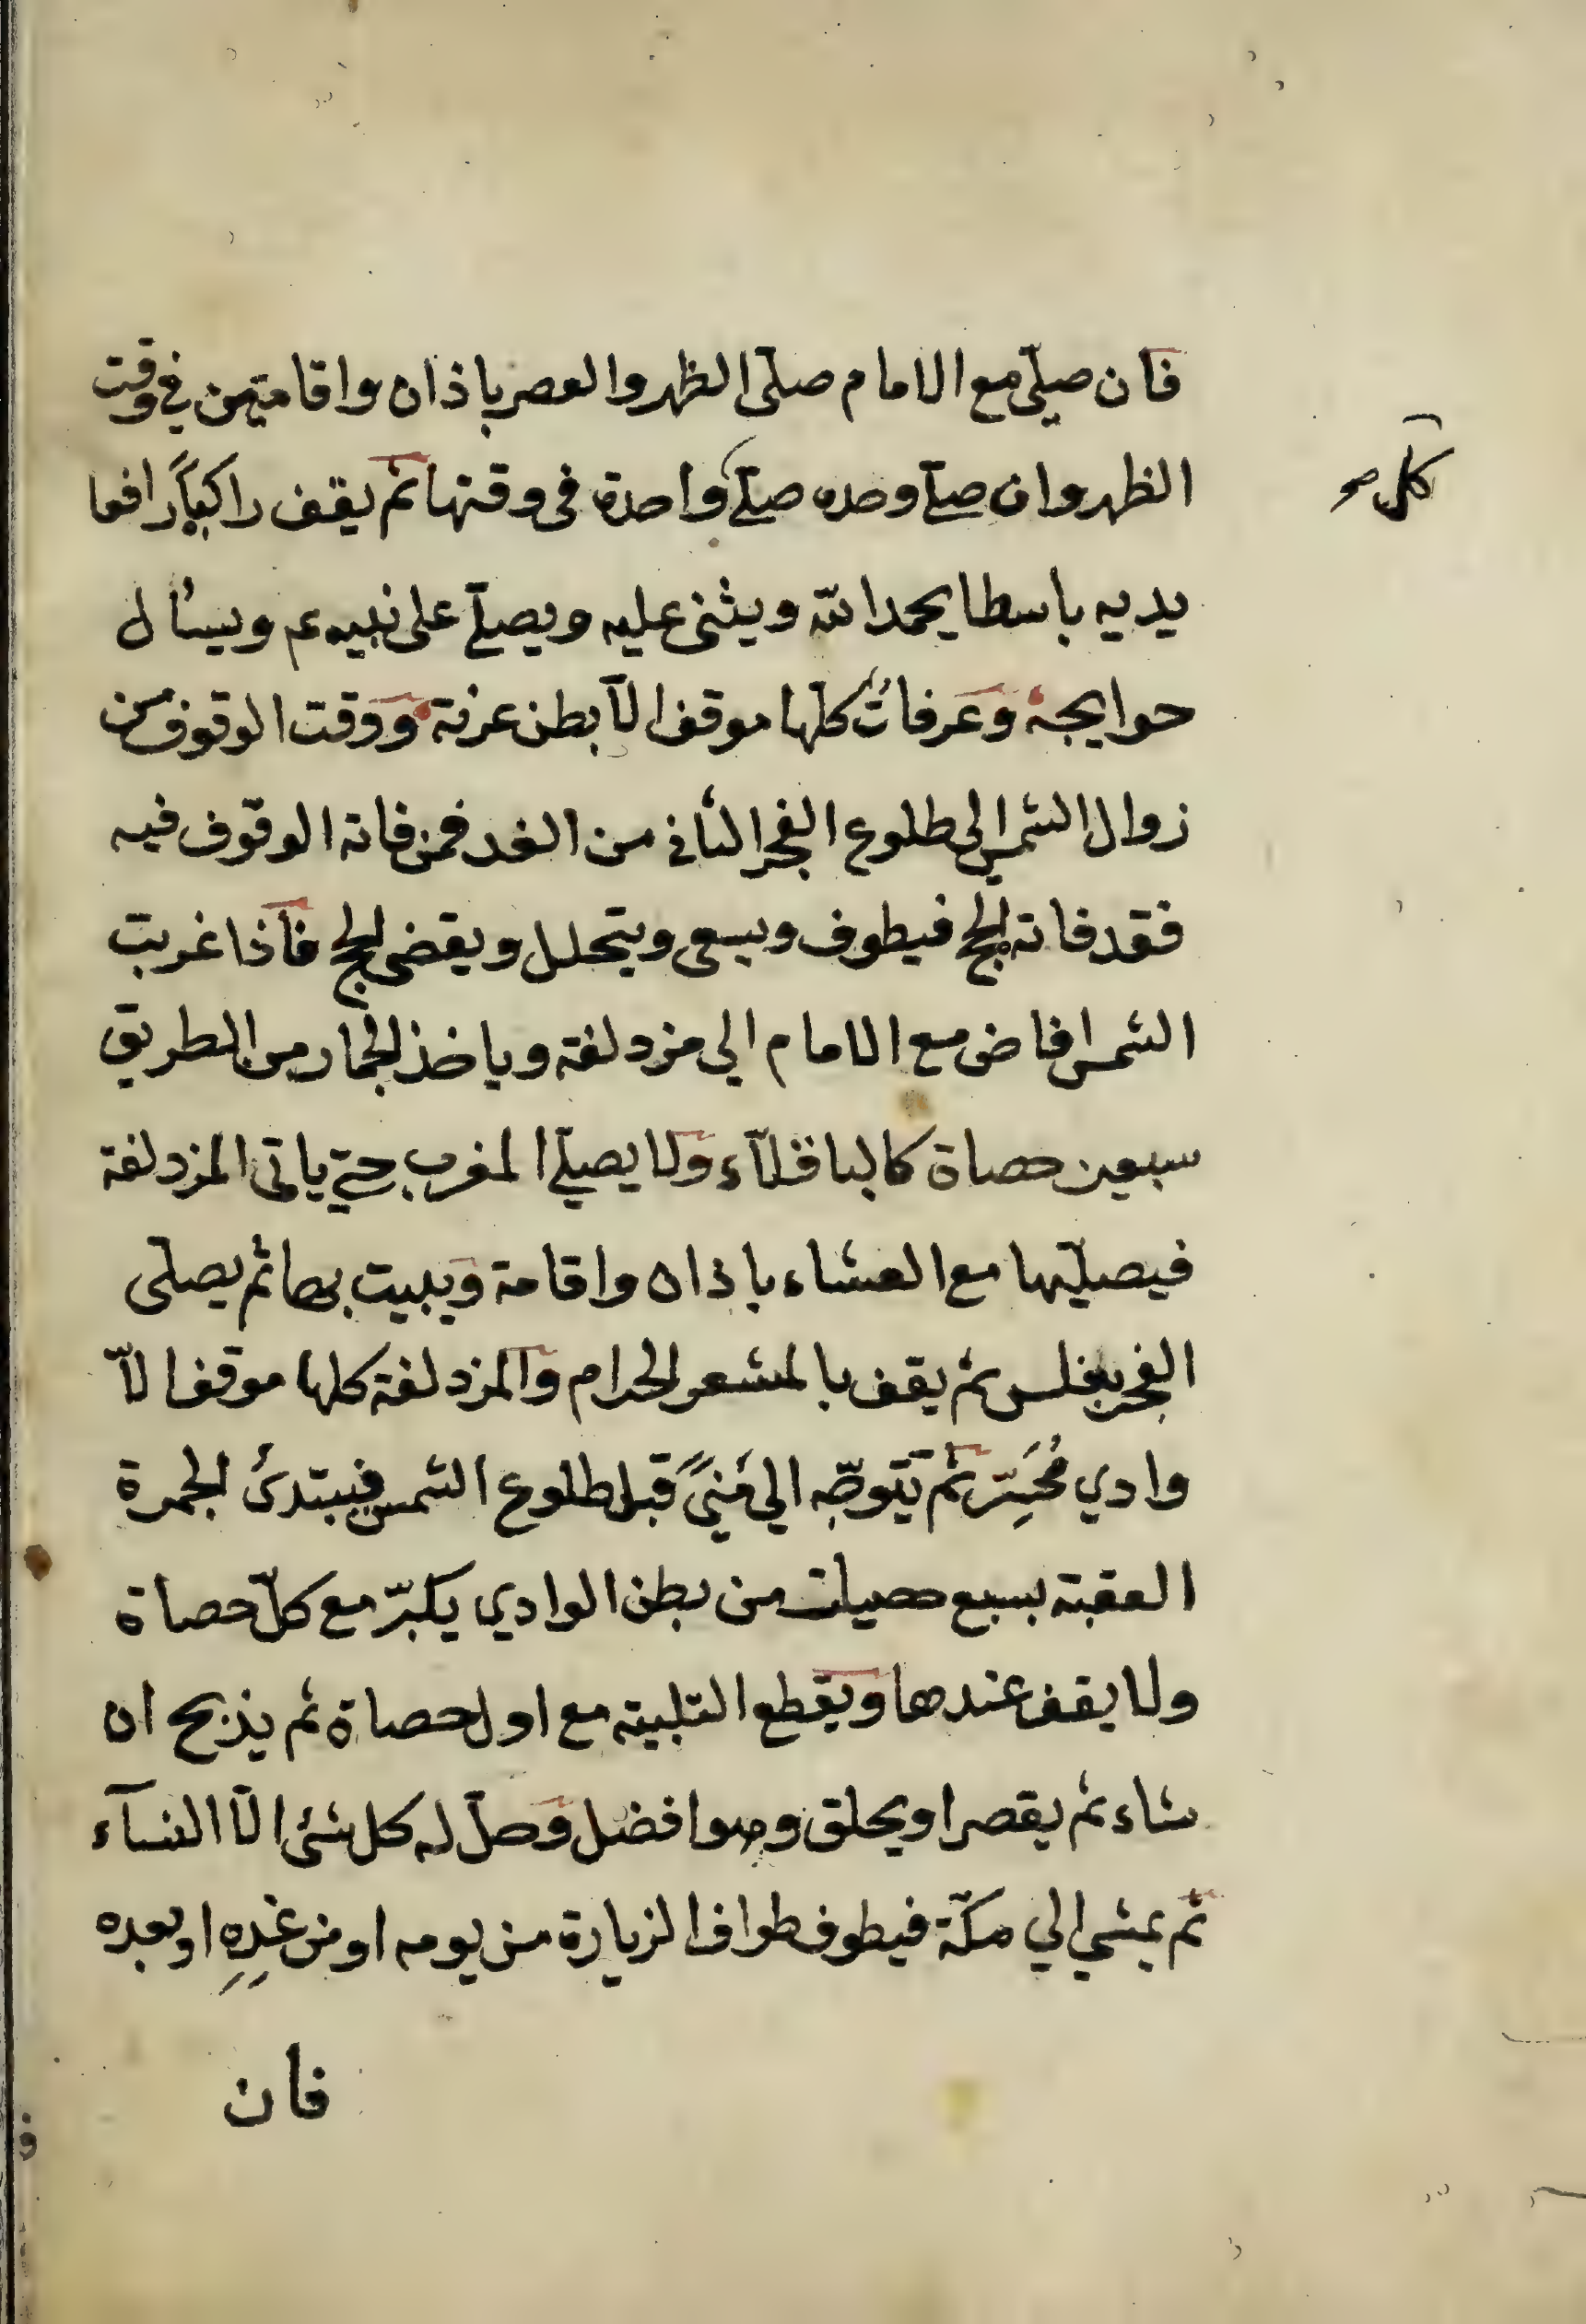 فان صلّى مع الامام صلّى الظهر والعصر باذان واقامتين في وقت
الظهر وان صلّے وحده صلّے واحدة في وقتها ثم يقف راكباً رافعا
كل صح
يديه باسطا يحمد اللّه ويثنى عليه ويصلّے على نبيه عم ويسئال
حوايجه وعرفاتُ كلّها موقف الّا بطن عرنة ووقت الوقوف من
زوال الشمس الى طلوع الفجر الثانى من الغد فمن فاته الوقوف فيه
فقد فاته الحج فيطوف ويسعى ويتحلل ويقضى الحج فاذا غربت
الشمس افاض مع الامام الي مزدلفة وياخذ الجمار من الطريق
سبعين حصاة كالباقلّاء ولا يصلّي المغرب حتّے ياتى المزدلفة
فيصلّيها مع العشاء باذان واقامة ويبيت بها ثم يصلّى
الفجر بغلس ثم يقف بالمشعر الحرام والمزدلفة كلها موقف الّا
وادي مُحَسِّر ثم يتوجّه الي مِنيً قبل طلوع الشمس فيبتدئ الجمرة
العقبة بسبع حصيات من بطن الوادي يكبّر مع كلّ حصاة
ولا يقف عندها ويقطع التلبية مع اول حصاة ثم يذبح ان
شاء ثم يقصر او يحلق وهو افضل وحلّ له كل شئ الّا النسآء
ثم يمشي الي مكّة فيطوف طواف الزيارة من يومه او من غدِهِ او بعده
فان